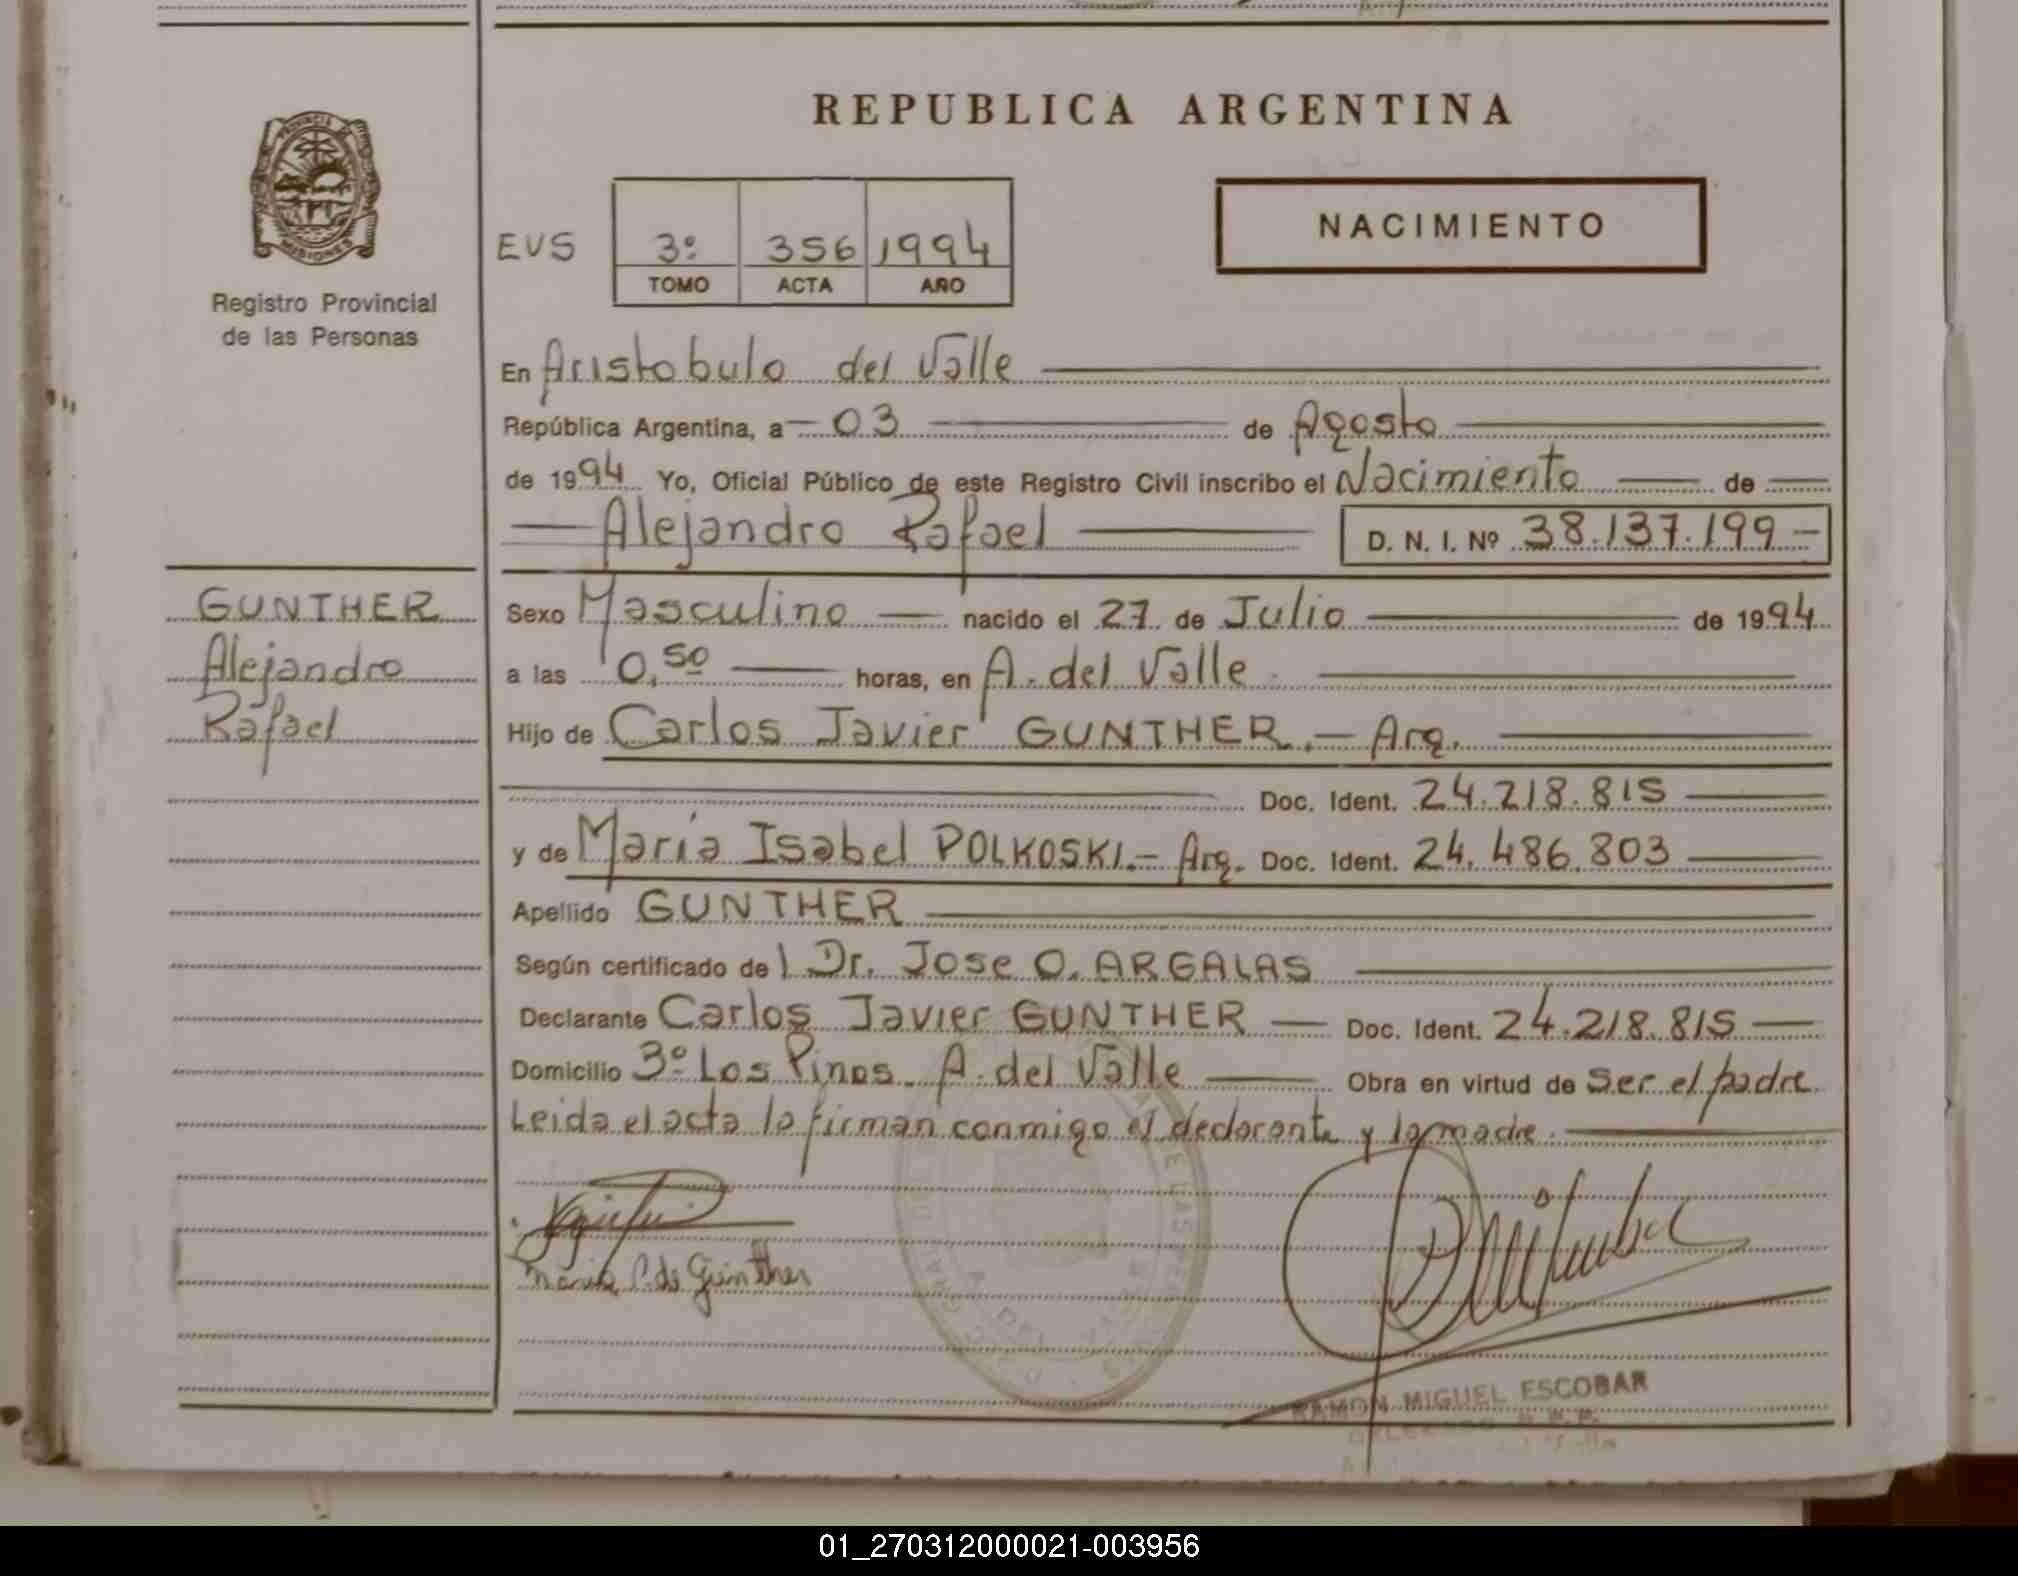 REPUBLICA ARGENTINA
PROVINCIA DE
MISIONES
Registro Provincial
de las Personas
NACIMIENTO
EVS 3º 356 1994
TOMO ACTA AÑO
En Aristobulo del Valle
República Argentina, a 03 de Agosto
de 1994 Yo, Oficial Público de este Registro Civil inscribo el Nacimiento de
Alejandro Rafael D. N. I. Nº 38.137.199.-
GUNTHER
Alejandro
Rafael
Sexo Masculino nacido el 27 de Julio de 1994
a las 0,50 horas, en A. del Valle.
Hijo de Carlos Javier GUNTHER.- Arg.
Doc. Ident. 24.218.815
y de María Isabel POLKOSKI.- Arg. Doc. Ident. 24.486.803
Apellido GUNTHER
Según certificado de l Dr. Jose O. ARGALAS
Declarante Carlos Javier GUNTHER Doc. Ident. 24.218.815
Domicilio 3º Los Pinos. A. del Valle Obra en virtud de ser el padre
Leida el acta la firman conmigo el declarante y la madre.
Maria P. de Günther
RAMON MIGUEL ESCOBAR
01_270312000021-003956